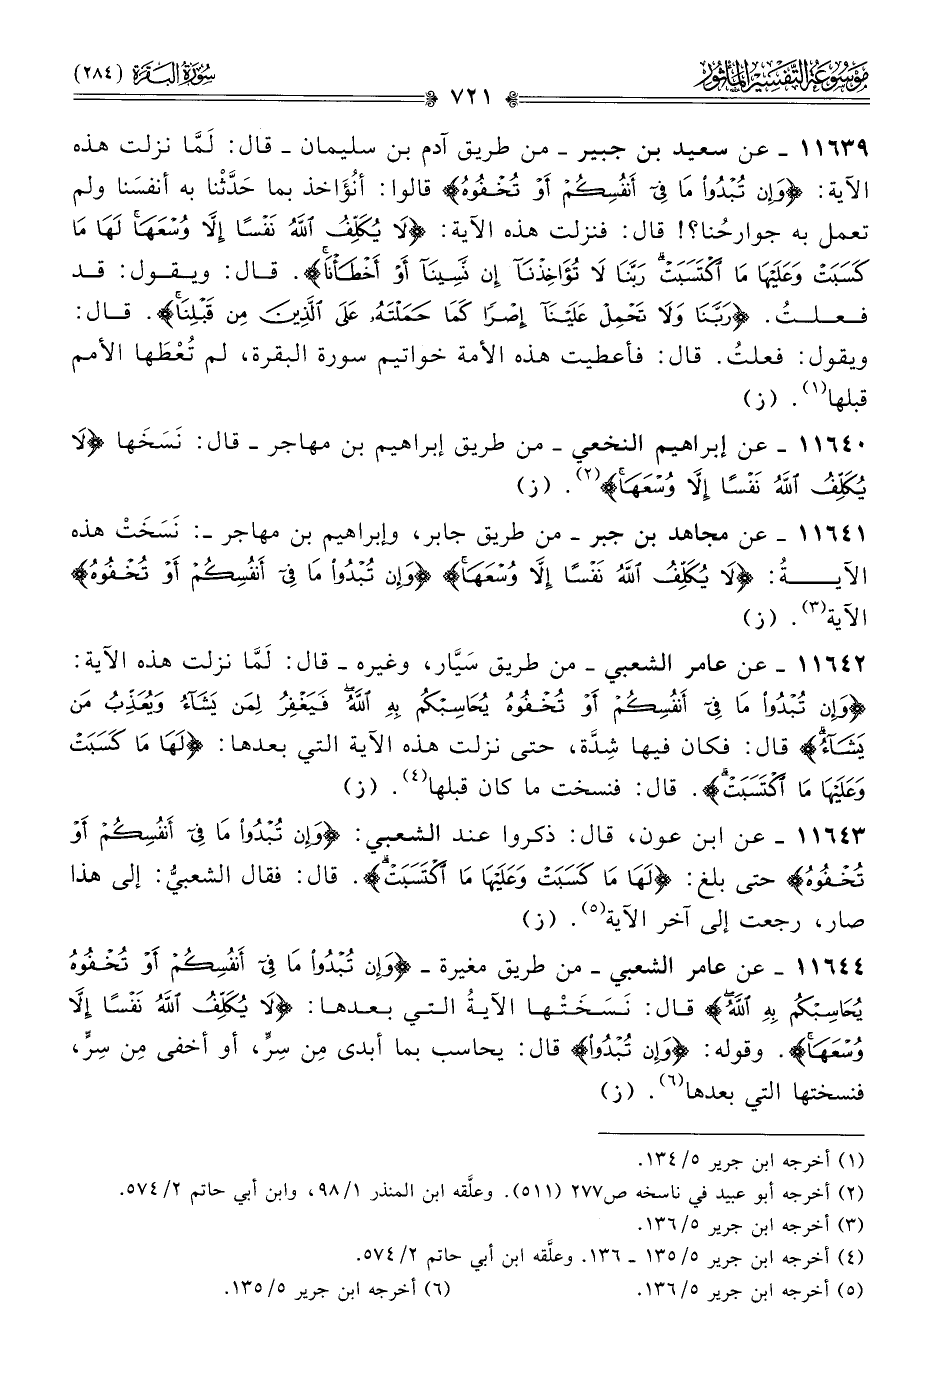 مَوْسُوعَة التَّفْسِير المَأْثُور
سُورَة البَقَرَة (٢٨٤)
٧٢١
١١٦٣٩ ـ عن سعيد بن جبير ـ من طريق آدم بن سليمان ـ قال: لَمَّا نزلت هذه
الآية: ﴿وَإِن تُبْدُوا۟ مَا فِىٓ أَنفُسِكُمْ أَوْ تُخْفُوهُ﴾ قالوا: أنُؤَاخذ بما حَدَّثْنا به أنفسَنا ولم
تعمل به جوارحُنا؟! قال: فنزلت هذه الآية: ﴿لَا يُكَلِّفُ ٱللَّهُ نَفْسًا إِلَّا وُسْعَهَا ۚ لَهَا مَا
كَسَبَتْ وَعَلَيْهَا مَا ٱكْتَسَبَتْ ۗ رَبَّنَا لَا تُؤَاخِذْنَآ إِن نَّسِينَآ أَوْ أَخْطَأْنَا ۚ﴾. قال: ويقول: قد
فعلتُ. ﴿رَبَّنَا وَلَا تَحْمِلْ عَلَيْنَآ إِصْرًا كَمَا حَمَلْتَهُۥ عَلَى ٱلَّذِينَ مِن قَبْلِنَا ۚ﴾. قال:
ويقول: فعلتُ. قال: فأعطيت هذه الأمة خواتيم سورة البقرة، لم تُعْطَها الأمم
قبلها(١). (ز)
١١٦٤٠ ـ عن إبراهيم النخعي ـ من طريق إبراهيم بن مهاجر ـ قال: نَسَخَها ﴿لَا
يُكَلِّفُ ٱللَّهُ نَفْسًا إِلَّا وُسْعَهَا ۚ﴾(٢). (ز)
١١٦٤١ ـ عن مجاهد بن جبر ـ من طريق جابر، وإبراهيم بن مهاجر ـ: نَسَخَتْ هذه
الآيةُ: ﴿لَا يُكَلِّفُ ٱللَّهُ نَفْسًا إِلَّا وُسْعَهَا ۚ﴾ ﴿وَإِن تُبْدُوا۟ مَا فِىٓ أَنفُسِكُمْ أَوْ تُخْفُوهُ﴾
الآية(٣). (ز)
١١٦٤٢ ـ عن عامر الشعبي ـ من طريق سَيَّار، وغيره ـ قال: لَمَّا نزلت هذه الآية:
﴿وَإِن تُبْدُوا۟ مَا فِىٓ أَنفُسِكُمْ أَوْ تُخْفُوهُ يُحَاسِبْكُم بِهِ ٱللَّهُ ۖ فَيَغْفِرُ لِمَن يَشَآءُ وَيُعَذِّبُ مَن
يَشَآءُ ۗ﴾ قال: فكان فيها شِدَّة، حتى نزلت هذه الآية التي بعدها: ﴿لَهَا مَا كَسَبَتْ
وَعَلَيْهَا مَا ٱكْتَسَبَتْ ۗ﴾. قال: فنسخت ما كان قبلها(٤). (ز)
١١٦٤٣ ـ عن ابن عون، قال: ذكروا عند الشعبي: ﴿وَإِن تُبْدُوا۟ مَا فِىٓ أَنفُسِكُمْ أَوْ
تُخْفُوهُ﴾ حتى بلغ: ﴿لَهَا مَا كَسَبَتْ وَعَلَيْهَا مَا ٱكْتَسَبَتْ ۗ﴾. قال: فقال الشعبيُّ: إلى هذا
صار، رجعت إلى آخر الآية(٥). (ز)
١١٦٤٤ ـ عن عامر الشعبي ـ من طريق مغيرة ـ ﴿وَإِن تُبْدُوا۟ مَا فِىٓ أَنفُسِكُمْ أَوْ تُخْفُوهُ
يُحَاسِبْكُم بِهِ ٱللَّهُ ۖ﴾ قال: نَسَخَتْها الآيةُ التي بعدها: ﴿لَا يُكَلِّفُ ٱللَّهُ نَفْسًا إِلَّا
وُسْعَهَا ۚ﴾. وقوله: ﴿وَإِن تُبْدُوا۟﴾ قال: يحاسب بما أبدى مِن سِرٍّ، أو أخفى مِن سِرٍّ،
فنسختها التي بعدها(٦). (ز)
(١) أخرجه ابن جرير ٥/ ١٣٤.
(٢) أخرجه أبو عبيد في ناسخه ص٢٧٧ (٥١١). وعلَّقه ابن المنذر ١/ ٩٨، وابن أبي حاتم ٢/ ٥٧٤.
(٣) أخرجه ابن جرير ٥/ ١٣٦.
(٤) أخرجه ابن جرير ٥/ ١٣٥ ـ ١٣٦. وعلَّقه ابن أبي حاتم ٢/ ٥٧٤.
(٥) أخرجه ابن جرير ٥/ ١٣٦. (٦) أخرجه ابن جرير ٥/ ١٣٥.